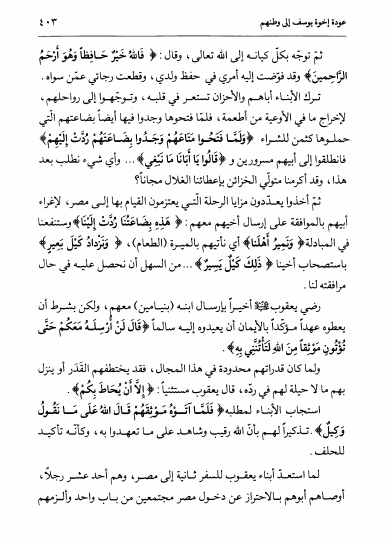 عودة إخوة يوسف إلى وطنهم ٤٠٣
ثمّ توجّه بكلّ كيانه إلى الله تعالى، وقال: ﴿ فَاللهُ خَيْرٌ حَافِظاً وَهُوَ أَرْحَمُ
الرَّاحِمِينَ﴾ وقد فوّضت إليه أمري في حفظ ولدي، وقطعت رجائي عمّن سواه.
ترك الأبناء أباهم والأحزان تستعر في قلبه، وتوجّهوا إلى رواحلهم،
لإخراج ما في الأوعية من أطعمة، فلمّا فتحوها وجدوا فيها أيضاً بضاعتهم الّتي
حملوها كثمن للشراء ﴿وَلَمَّا فَتَحُوا مَتَاعَهُمْ وَجَدُوا بِضَاعَتَهُمْ رُدَّتْ إِلَيْهِمْ﴾
فانطلقوا إلى أبيهم مسرورين و ﴿قَالُوا يَا أَبَانَا مَا نَبْغِي﴾... وأي شيء نطلب بعد
هذا، وقد أكرمنا متولّي الخزائن بإعطائنا الغلال مجاناً؟
ثمّ أخذوا يعدّدون مزايا الرحلة الّتي يعتزمون القيام بها إلى مصر، لإغراء
أبيهم بالموافقة على إرسال أخيهم معهم: ﴿ هَذِهِ بِضَاعَتُنَا رُدَّتْ إِلَيْنَا﴾ وستنفعنا
في المبادلة﴿ وَنَمِيرُ أَهْلَنَا﴾ أي نأتيهم بالميرة (الطعام)، ﴿ وَنَزْدَادُ كَيْلَ بَعِيرٍ﴾
باستصحاب أخينا ﴿ ذَلِكَ كَيْلٌ يَسِيرٌ﴾...من السهل أن نحصل عليه في حال
مرافقته لنا.
رضي يعقوب ﷺ أخيراً بإرسال ابنه (بنيامين) معهم، ولكن بشرط أن
يعطوه عهداً مؤكّداً بالأيمان أن يعيدوه إليه سالماً﴿قَالَ لَنْ أُرْسِلَهُ مَعَكُمْ حَتَّى
تُؤْتُونِ مَوْثِقاً مِنَ اللهِ لَتَأْتُنَّنِي بِهِ﴾.
ولما كان قدراتهم محدودة في هذا المجال، فقد يختطفهم القَدَر أو ينزل
بهم ما لا حيلة لهم في ردّه، قال يعقوب مستثنياً: ﴿ إِلاَّ أَنْ يُحَاطَ بِكُمْ﴾.
استجاب الأبناء لمطلبه﴿ فَلَمَّا آتَوْهُ مَوْثِقَهُمْ قَالَ اللهُ عَلَى مَا نَقُولُ
وَكِيلٌ﴾.تذكيراً لهم بأنّ الله رقيب وشاهد على ما تعهدوا به، وكأنّه تأكيد
للحلف.
لما استعدّ أبناء يعقوب للسفر ثانية إلى مصر، وهم أحد عشر رجلاً،
أوصاهم أبوهم بالاحتراز عن دخول مصر مجتمعين من باب واحد وألزمهم